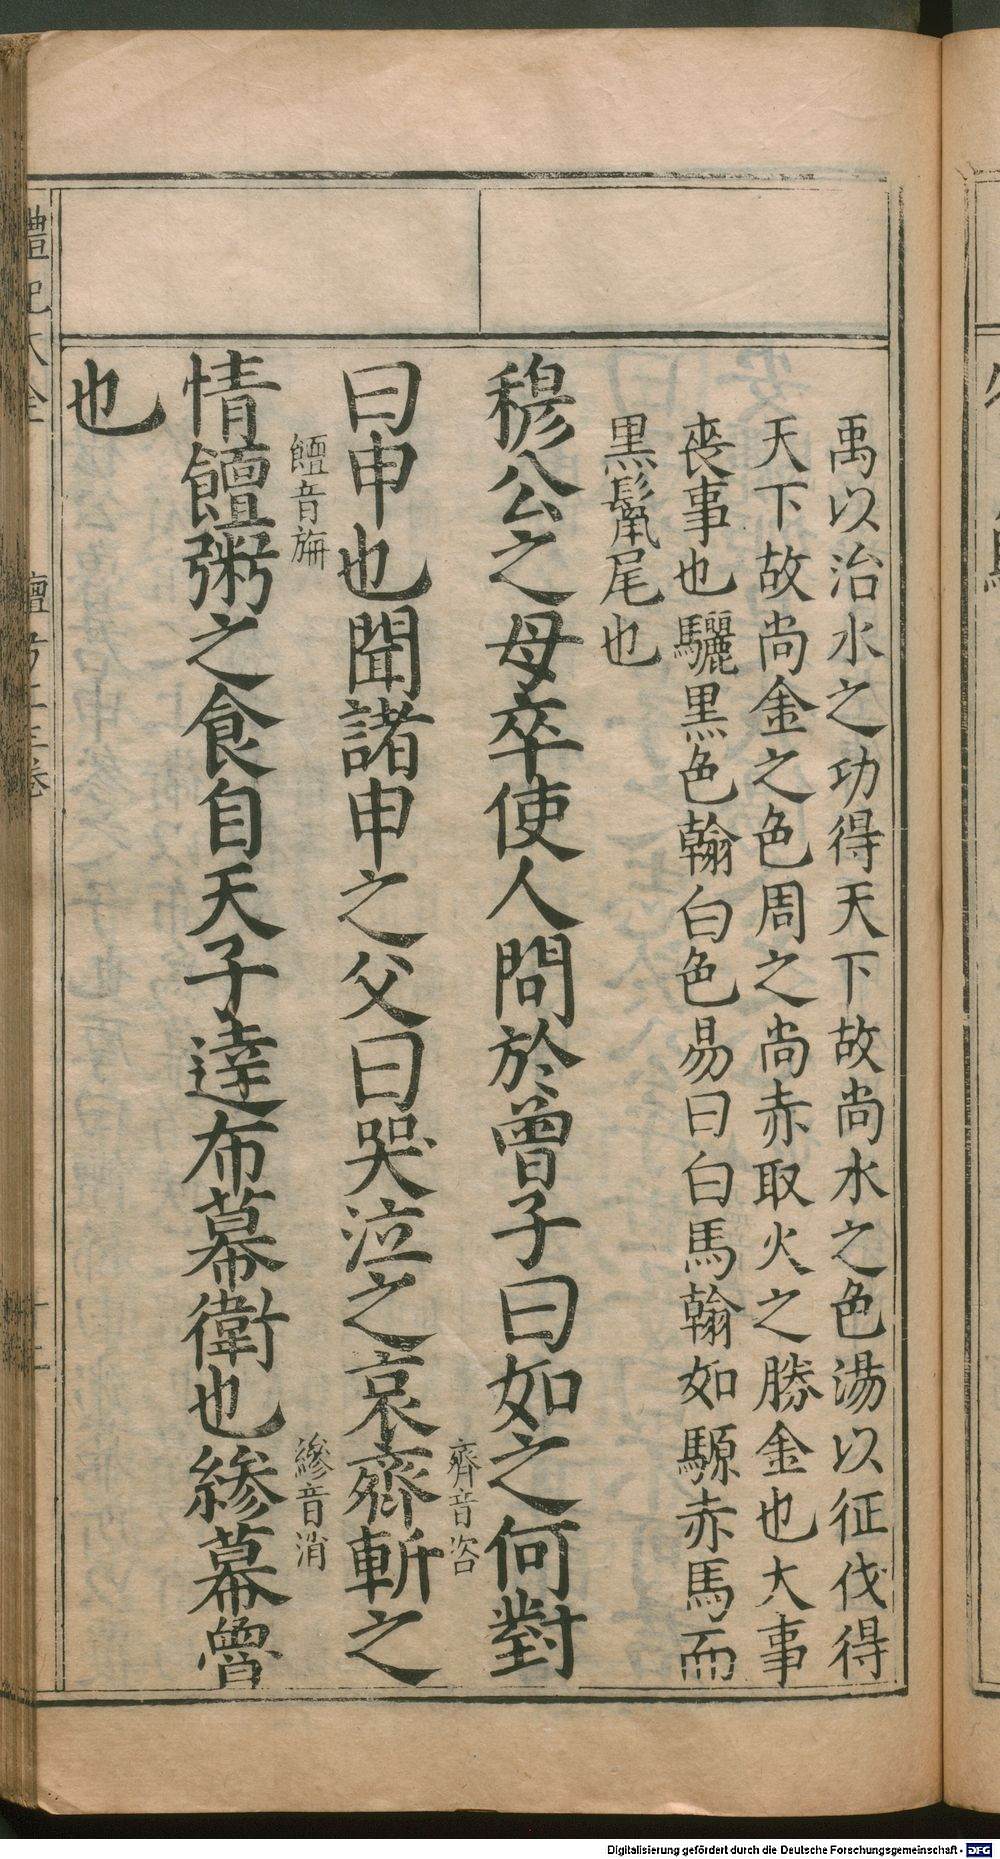 禹以治水之功得天下故尚水之色湯以征伐得
天下故尚金之色周之尚赤取火之勝金也大事
喪事也驪黑色翰白色易曰白馬翰如騵赤馬而
黑鬣尾也
穆公之母卒使人問於曾子曰如之何對
齊音咨
曰申也聞諸申之父曰哭泣之哀齊斬之
饘音旃
縿音消
情饘粥之食自天子達布幕衛也縿幕魯
也
禮記大全
檀弓上三卷
十二
Digitalisierung gefördert durch die Deutsche Forschungsgemeinschaft - DFG